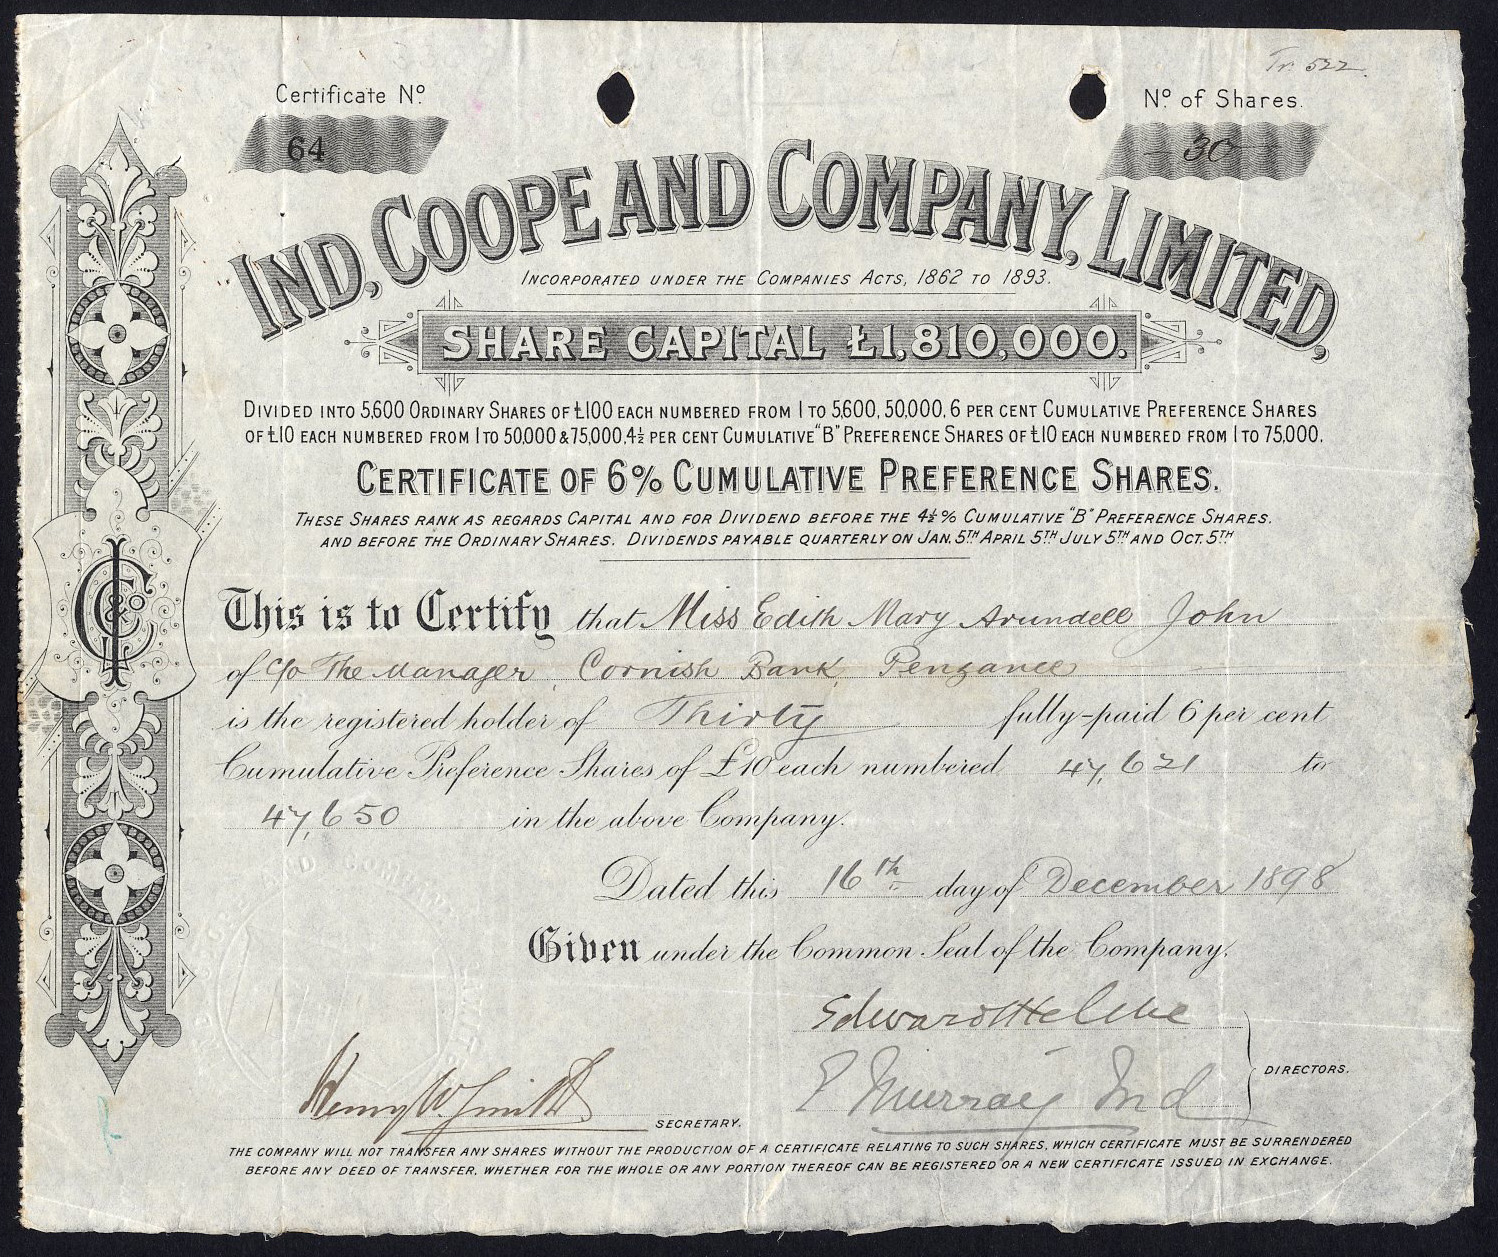 Tr. 522
Certificate Nº
Nº of Shares.
64
30
IND, COOPE AND COMPANY, LIMITED,
INCORPORATED UNDER THE COMPANIES ACTS, 1862 TO 1893.
SHARE CAPITAL £1,810,000.
DIVIDED INTO 5,600 ORDINARY SHARES OF £100 EACH NUMBERED FROM 1 TO 5,600, 50,000, 6 PER CENT CUMULATIVE PREFERENCE SHARES
OF £10 EACH NUMBERED FROM 1 TO 50,000 & 75,000, 4½ PER CENT CUMULATIVE "B" PREFERENCE SHARES OF £10 EACH NUMBERED FROM 1 TO 75,000.
CERTIFICATE OF 6% CUMULATIVE PREFERENCE SHARES.
THESE SHARES RANK AS REGARDS CAPITAL AND FOR DIVIDEND BEFORE THE 4½% CUMULATIVE "B" PREFERENCE SHARES.
AND BEFORE THE ORDINARY SHARES. DIVIDENDS PAYABLE QUARTERLY ON JAN. 5TH APRIL 5TH JULY 5TH AND OCT. 5TH
This is to Certify that Miss Edith Mary Arundell John
of c/o The Manager, Cornish Bank, Penzance
is the registered holder of Thirty fully-paid 6 per cent
Cumulative Preference Shares of £10 each numbered 47,621 to
47,650 in the above Company.
Dated this 16th day of December 1898
Given under the Common Seal of the Company.
Henry W. Smith SECRETARY.
E Murray Ind
DIRECTORS.
THE COMPANY WILL NOT TRANSFER ANY SHARES WITHOUT THE PRODUCTION OF A CERTIFICATE RELATING TO SUCH SHARES, WHICH CERTIFICATE MUST BE SURRENDERED
BEFORE ANY DEED OF TRANSFER, WHETHER FOR THE WHOLE OR ANY PORTION THEREOF CAN BE REGISTERED OR A NEW CERTIFICATE ISSUED IN EXCHANGE.